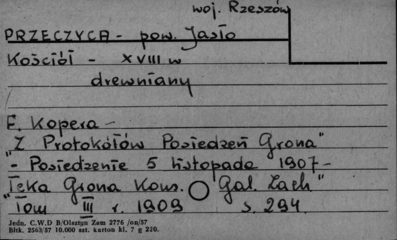 woj. Rzeszów
PRZECZYCA - pow. Jasło
Kościół - XVIII w
drewniany
F. Kopera -
"Z Protokółów Posiedzeń Grona"
- Posiedzenie 5 listopada 1907 -
"Teka Grona Kons. Gal. Zach"
Tom III r. 1909 s. 294.
Jedn. C.W.D B/Olsztyn Zam 2776 /on/57
Bltk. 2563/57 10.000 szt. karton kl. 7 g 220.